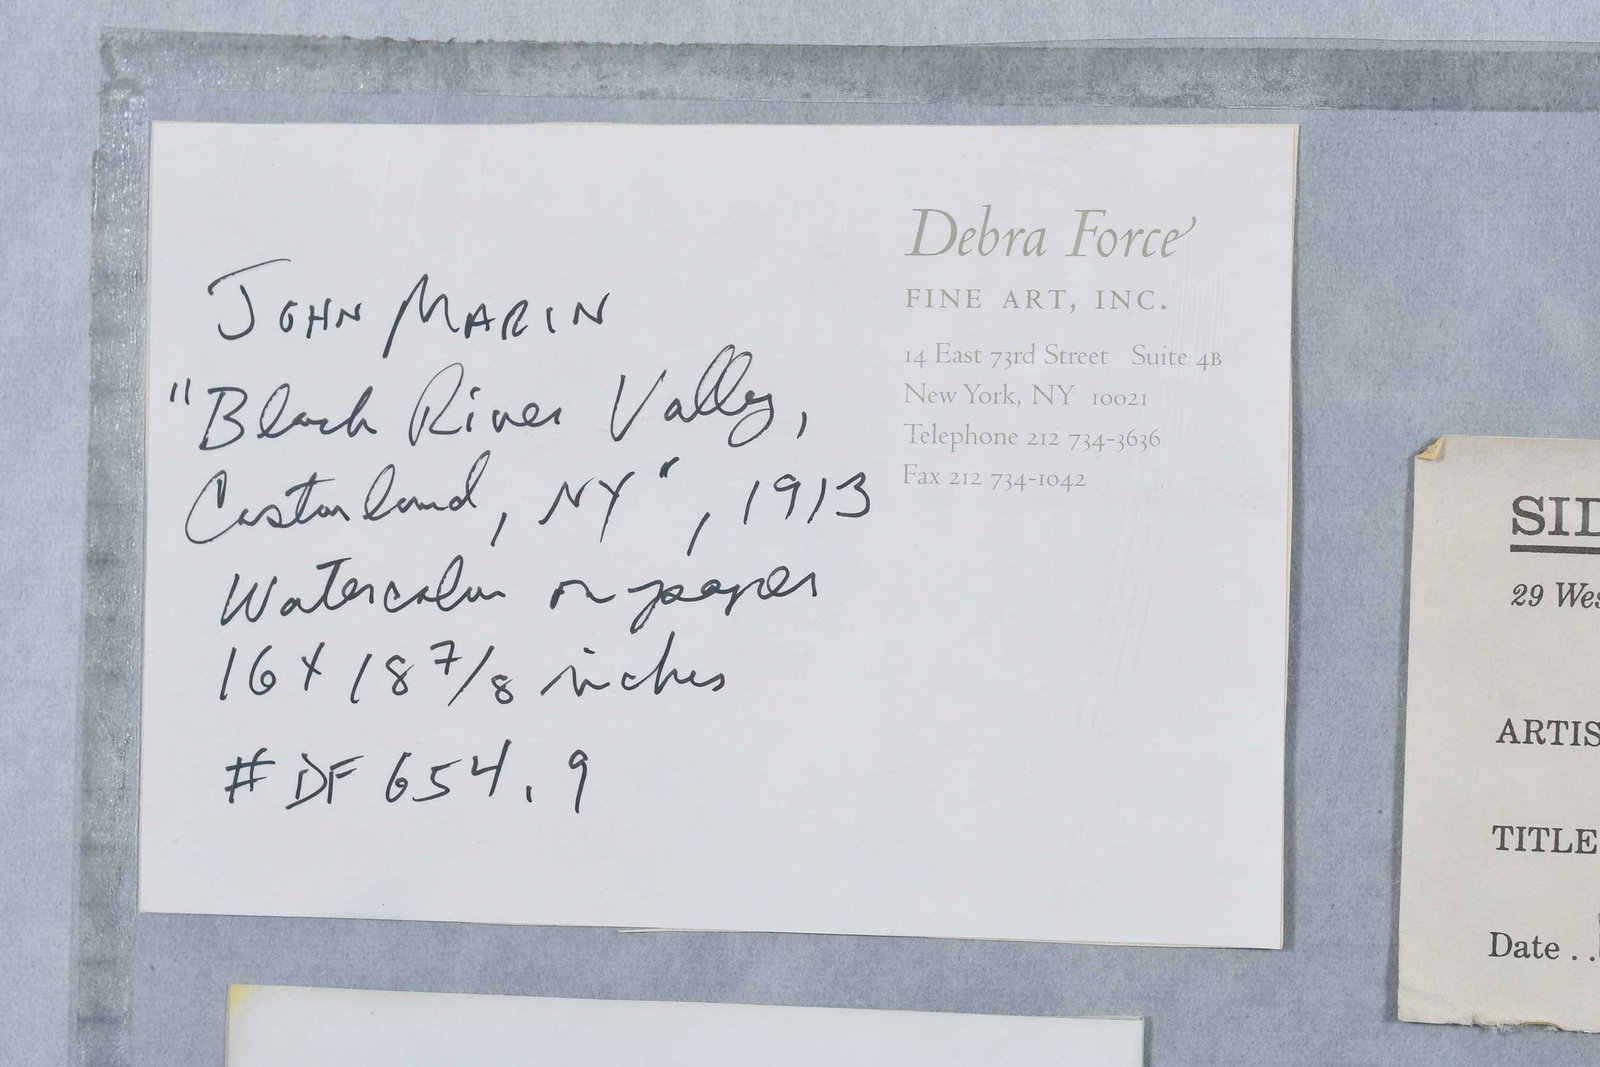 JOHN MARIN
"Black River Valley,
Castorland, NY", 1913
Watercolor on paper
16 x 18 7/8 inches
#DF 654.9
Debra Force
FINE ART, INC.
14 East 73rd Street Suite 4B
New York, NY 10021
Telephone 212 734-3636
Fax 212 734-1042
SID
29 Wes
ARTIS
TITLE
Date . .